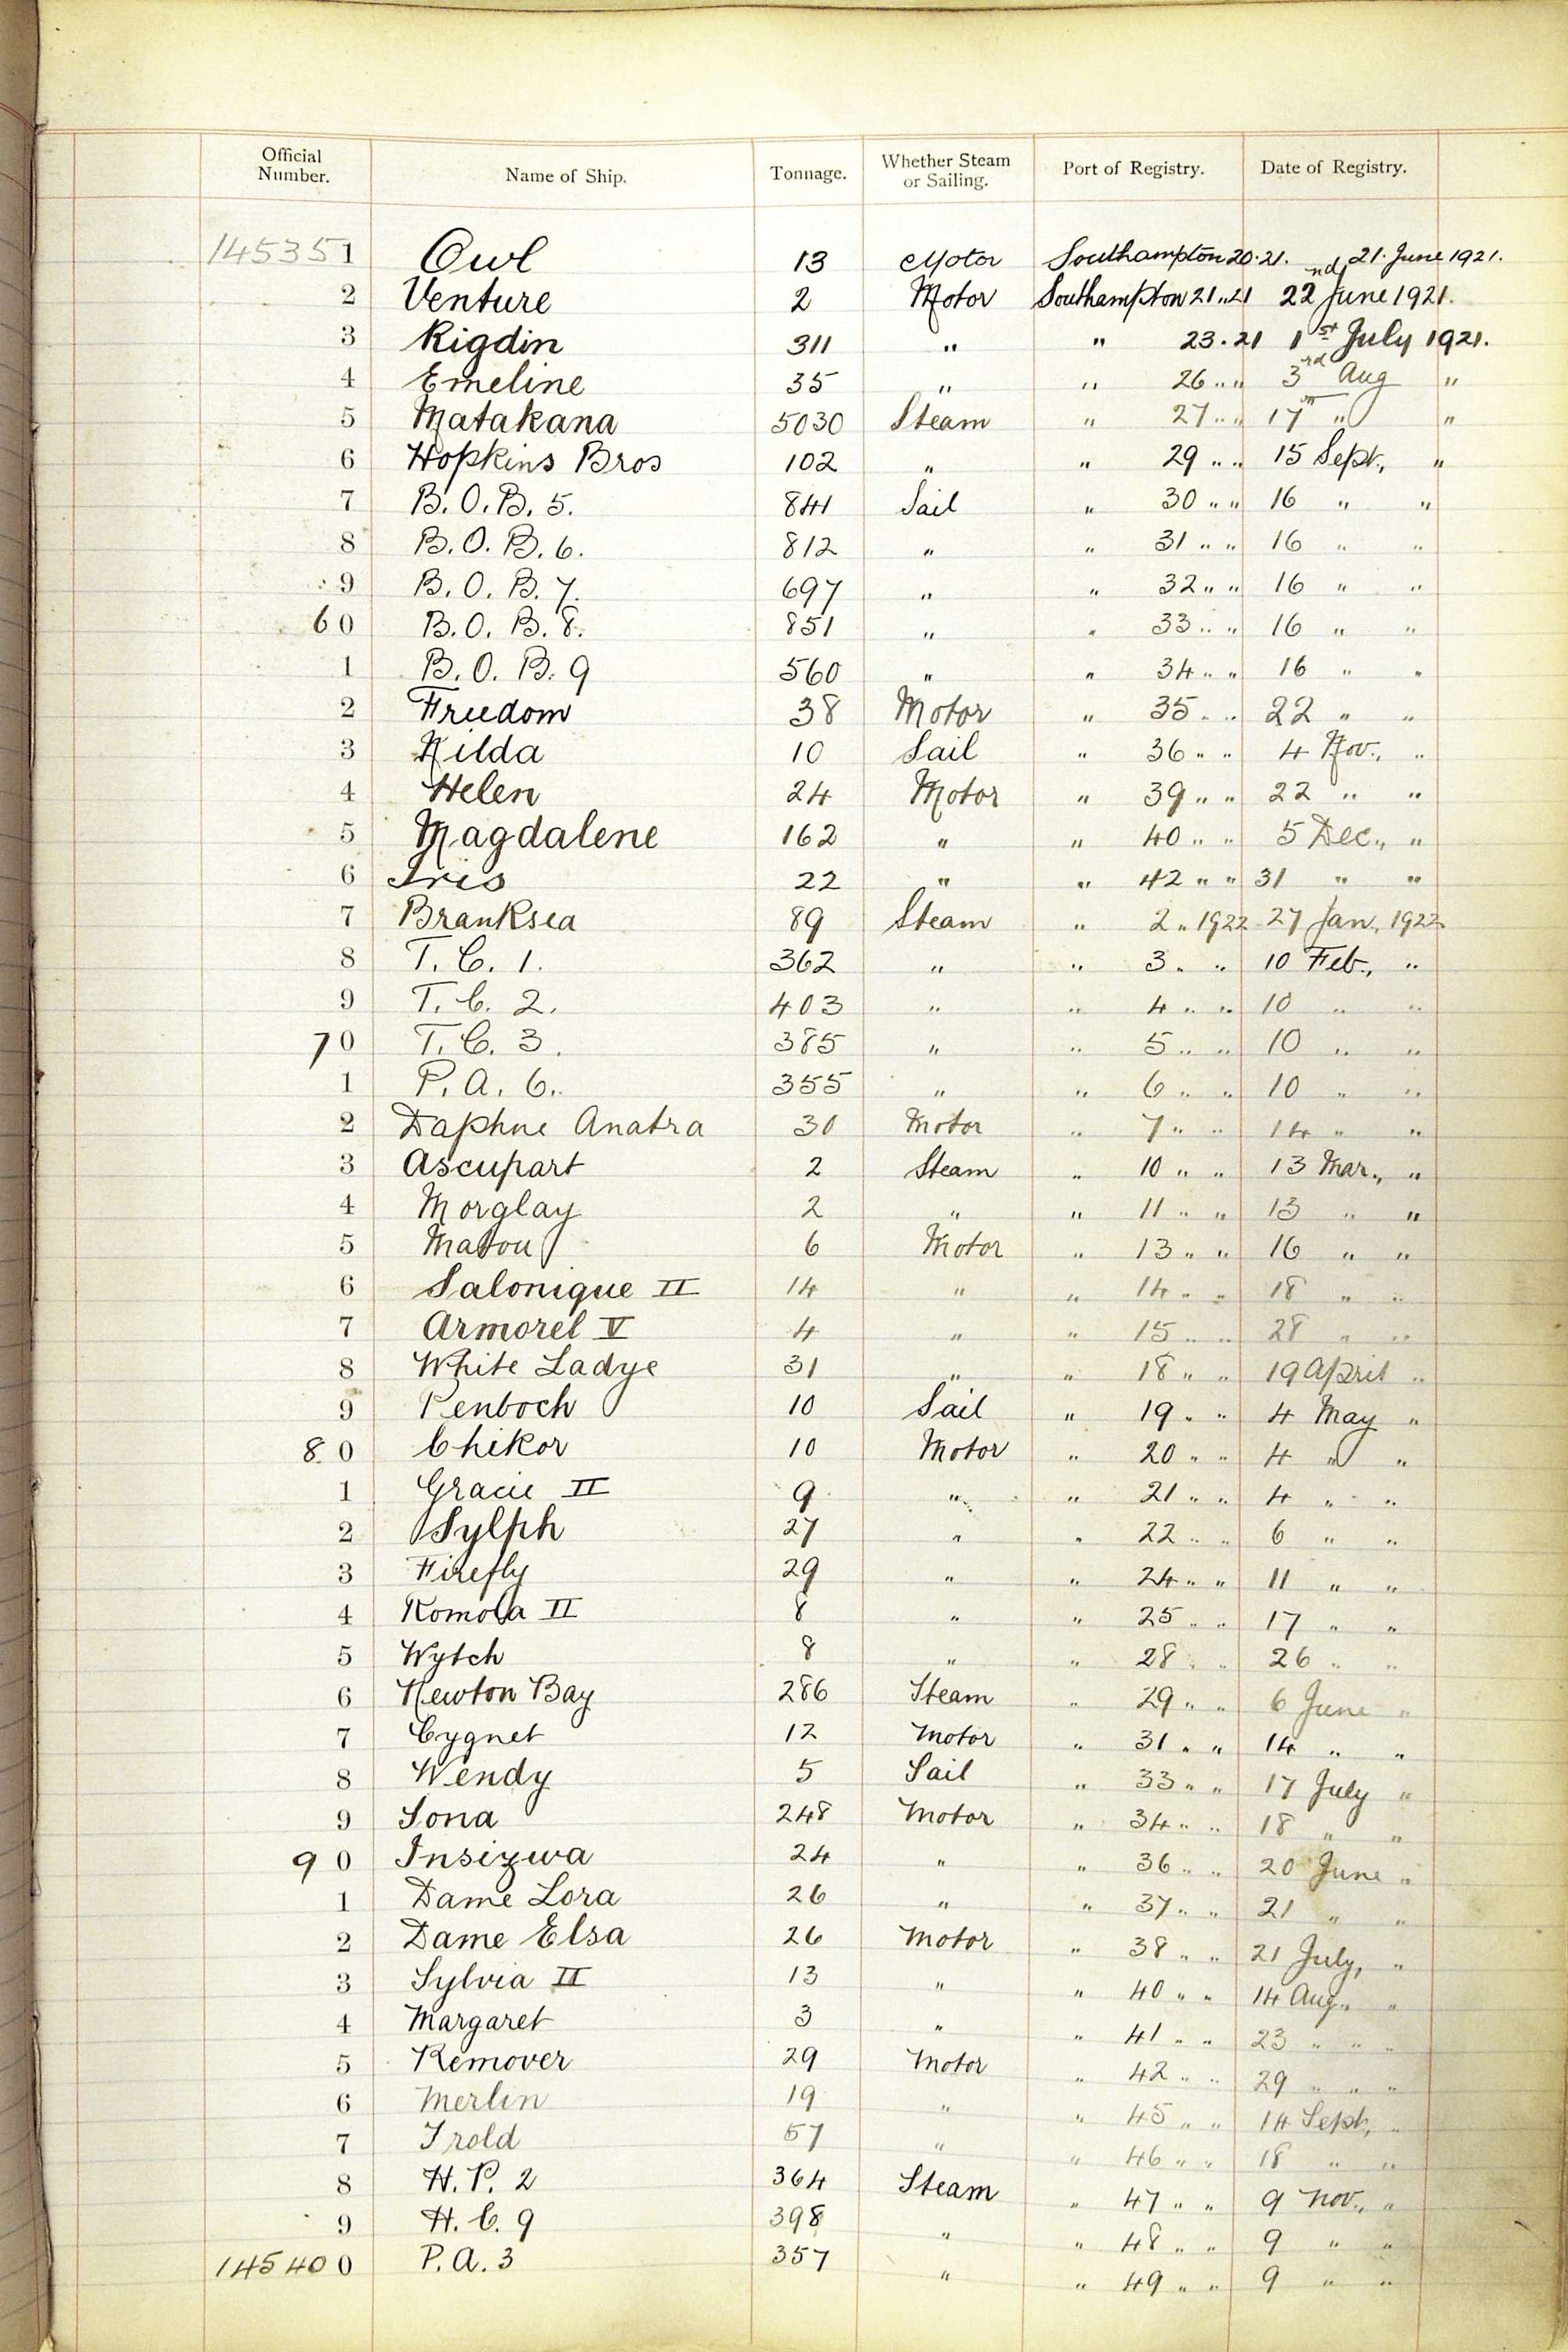 Official Number. Name of Ship. Tonnage. Whether Steam or Sailing. Port of Registry. Date of Registry.
145351 Owl 13 Motor Southampton 20.21. 21. June 1921.
2 Venture 2 Motor Southampton 21..21 22nd June 1921.
3 Rigdin 311 " " 23.21 1st July 1921.
4 Emeline 35 " " 26 " " 3rd Aug "
5 Matakana 5030 Steam " 27 " " 17th " "
6 Hopkins Bros 102 " " 29 " " 15 Sept., "
7 B.O.B. 5. 841 Sail " 30 " " 16 " "
8 B.O.B. 6. 812 " " 31 " " 16 " "
9 B.O.B. 7. 697 " " 32 " " 16 " "
60 B.O.B. 8. 851 " " 33 " " 16 " "
1 B.O.B. 9 560 " " 34 " " 16 " "
2 Freedom 38 Motor " 35 " " 22 " "
3 Hilda 10 Sail " 36 " " 4 Nov., "
4 Helen 24 Motor " 39 " " 22 " "
5 Magdalene 162 " " 40 " " 5 Dec., "
6 Iris 22 " " 42 " " 31 " "
7 Branksea 89 Steam " 2 " 1922 27 Jan, 1922
8 T.C. 1. 362 " " 3 " " 10 Feb., "
9 T.C. 2. 403 " " 4 " " 10 " "
70 T.C. 3. 385 " " 5 " " 10 " "
1 P.A. 6. 355 " " 6 " " 10 " "
2 Daphne Anatra 30 Motor " 7 " " 14 " "
3 Ascupart 2 Steam " 10 " " 13 Mar., "
4 Morglay 2 " " 11 " " 13 " "
5 6 Motor " 13 " " 16 " "
6 Salonique II 14 " " 14 " " 18 " "
7 Armorel V 4 " " 15 " " 28 " "
8 White Ladye 31 " " 18 " " 19 April "
9 Penboch 10 Sail " 19 " " 4 May "
80 Chikor 10 Motor " 20 " " 4 " "
1 Gracie II 9 " " 21 " " 4 " "
2 Sylph 27 " " 22 " " 6 " "
3 Firefly 29 " " 24 " " 11 " "
4 Romola II 8 " " 25 " " 17 " "
5 Wytch 8 " " 28 " " 26 " "
6 Newton Bay 286 Steam " 29 " " 6 June "
7 Cygnet 12 Motor " 31 " " 14 " "
8 Wendy 5 Sail " 33 " " 17 July "
9 Sona 248 Motor " 34 " " 18 " "
90 Insizwa 24 " " 36 " " 20 June "
1 Dame Lora 26 " " 37 " " 21 " "
2 Dame Elsa 26 Motor " 38 " " 21 July, "
3 Sylvia II 13 " " 40 " " 14 Aug. "
4 Margaret 3 " " 41 " " 23 " " "
5 Remover 29 Motor " 42 " " 29 " " "
6 Merlin 19 " " 45 " " 14 Sept., "
7 Trold 57 " " 46 " " 18 " "
8 H.P. 2 364 Steam " 47 " " 9 Nov., "
9 H.C. 9 398 " " 48 " " 9 " "
145400 P.A. 3 357 " " 49 " " 9 " "